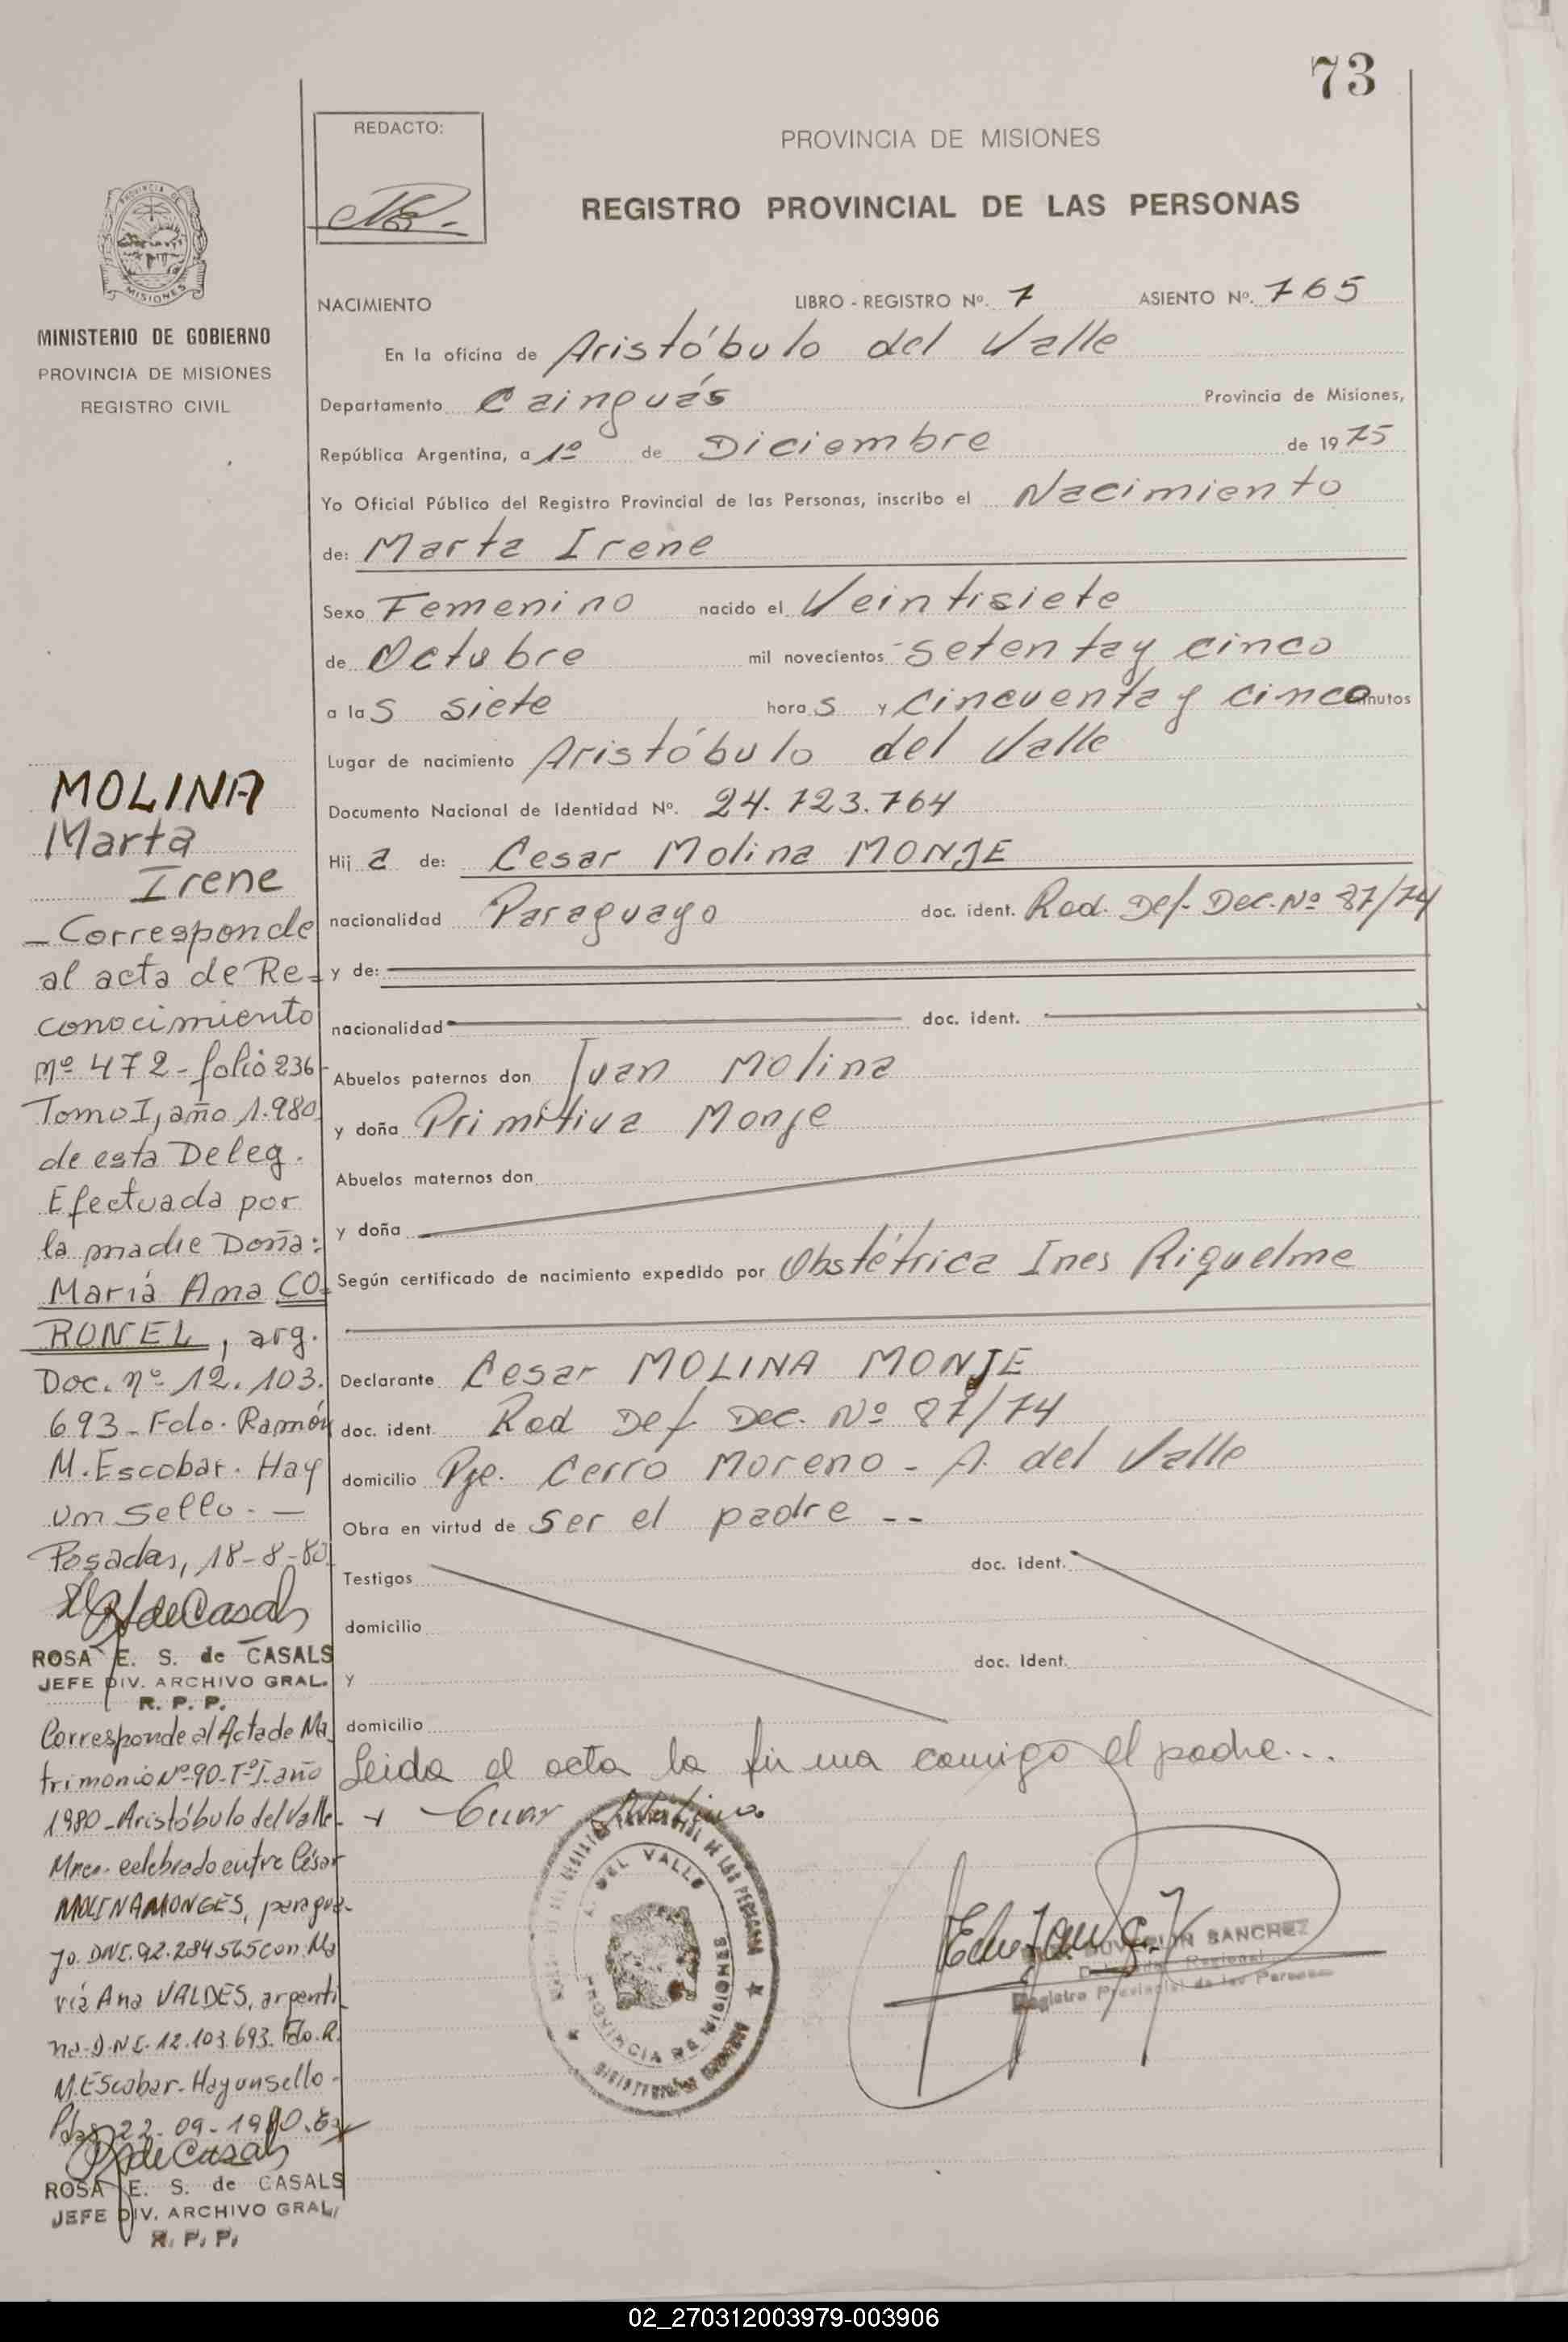 73
REDACTO:
PROVINCIA DE MISIONES
REGISTRO PROVINCIAL DE LAS PERSONAS
MISIONES
MINISTERIO DE GOBIERNO
PROVINCIA DE MISIONES
REGISTRO CIVIL
NACIMIENTO LIBRO - REGISTRO Nº. 7 ASIENTO Nº. 765
En la oficina de Aristóbulo del Valle
Departamento Cainguás Provincia de Misiones,
República Argentina, a 1º de Diciembre de 1975
Yo Oficial Público del Registro Provincial de las Personas, inscribo el Nacimiento
de: Marta Irene
Sexo Femenino nacido el Veintisiete
de Octubre mil novecientos setenta y cinco
a las siete horas y cincuenta y cinco minutos
Lugar de nacimiento Aristóbulo del Valle
Documento Nacional de Identidad Nº. 24.723.764
Hija de: Cesar Molina MONJE
nacionalidad Paraguayo doc. ident. Rad. Def. Dec. Nº 87/74
y de:
nacionalidad doc. ident.
Abuelos paternos don Juan Molina
y doña Primitiva Monje
Abuelos maternos don
y doña
Según certificado de nacimiento expedido por Obstétrica Ines Riquelme
Declarante Cesar MOLINA MONJE
doc. ident. Rad Def Dec. Nº 87/74
domicilio Pje. Cerro Moreno - A. del Valle
Obra en virtud de ser el padre --
Testigos doc. ident.
domicilio
y doc. ident.
domicilio
Leida el acta la firma conmigo el padre...
+ Cesar Molina.
A. DEL VALLE
PROVINCIA DE MISIONES
SANCHEZ
Delegado Regional
Registro Provincial de las Personas
MOLINA
Marta
Irene
- Corresponde
al acta de Re-
conocimiento
nº 472 - folio 236-
Tomo I, año 1.980
de esta Deleg.
Efectuada por
la madre Doña:
Maria Ana CO-
RONEL, arg.
Doc. nº 12.103.
693 - Fdo. Ramón
M. Escobar. Hay
un sello. -
Posadas, 18-8-80
ROSA E. S. de CASALS
JEFE DIV. ARCHIVO GRAL.
R. P. P.
Corresponde al Acta de Ma
trimonio Nº 90 - Tº I - año
1980 - Aristóbulo del Valle -
Mnes. celebrado entre César
MOLINA MONGES, paragua-
yo. DNI. 92.284565 con Ma
ria Ana VALDES, argenti-
na - D.N.I. 12.103.693. Fdo. R.
M. Escobar - Hay un sello -
Pdas 22-09-1980.
ROSA E. S. de CASALS
JEFE DIV. ARCHIVO GRAL.
R. P. P.
02_270312003979-003906